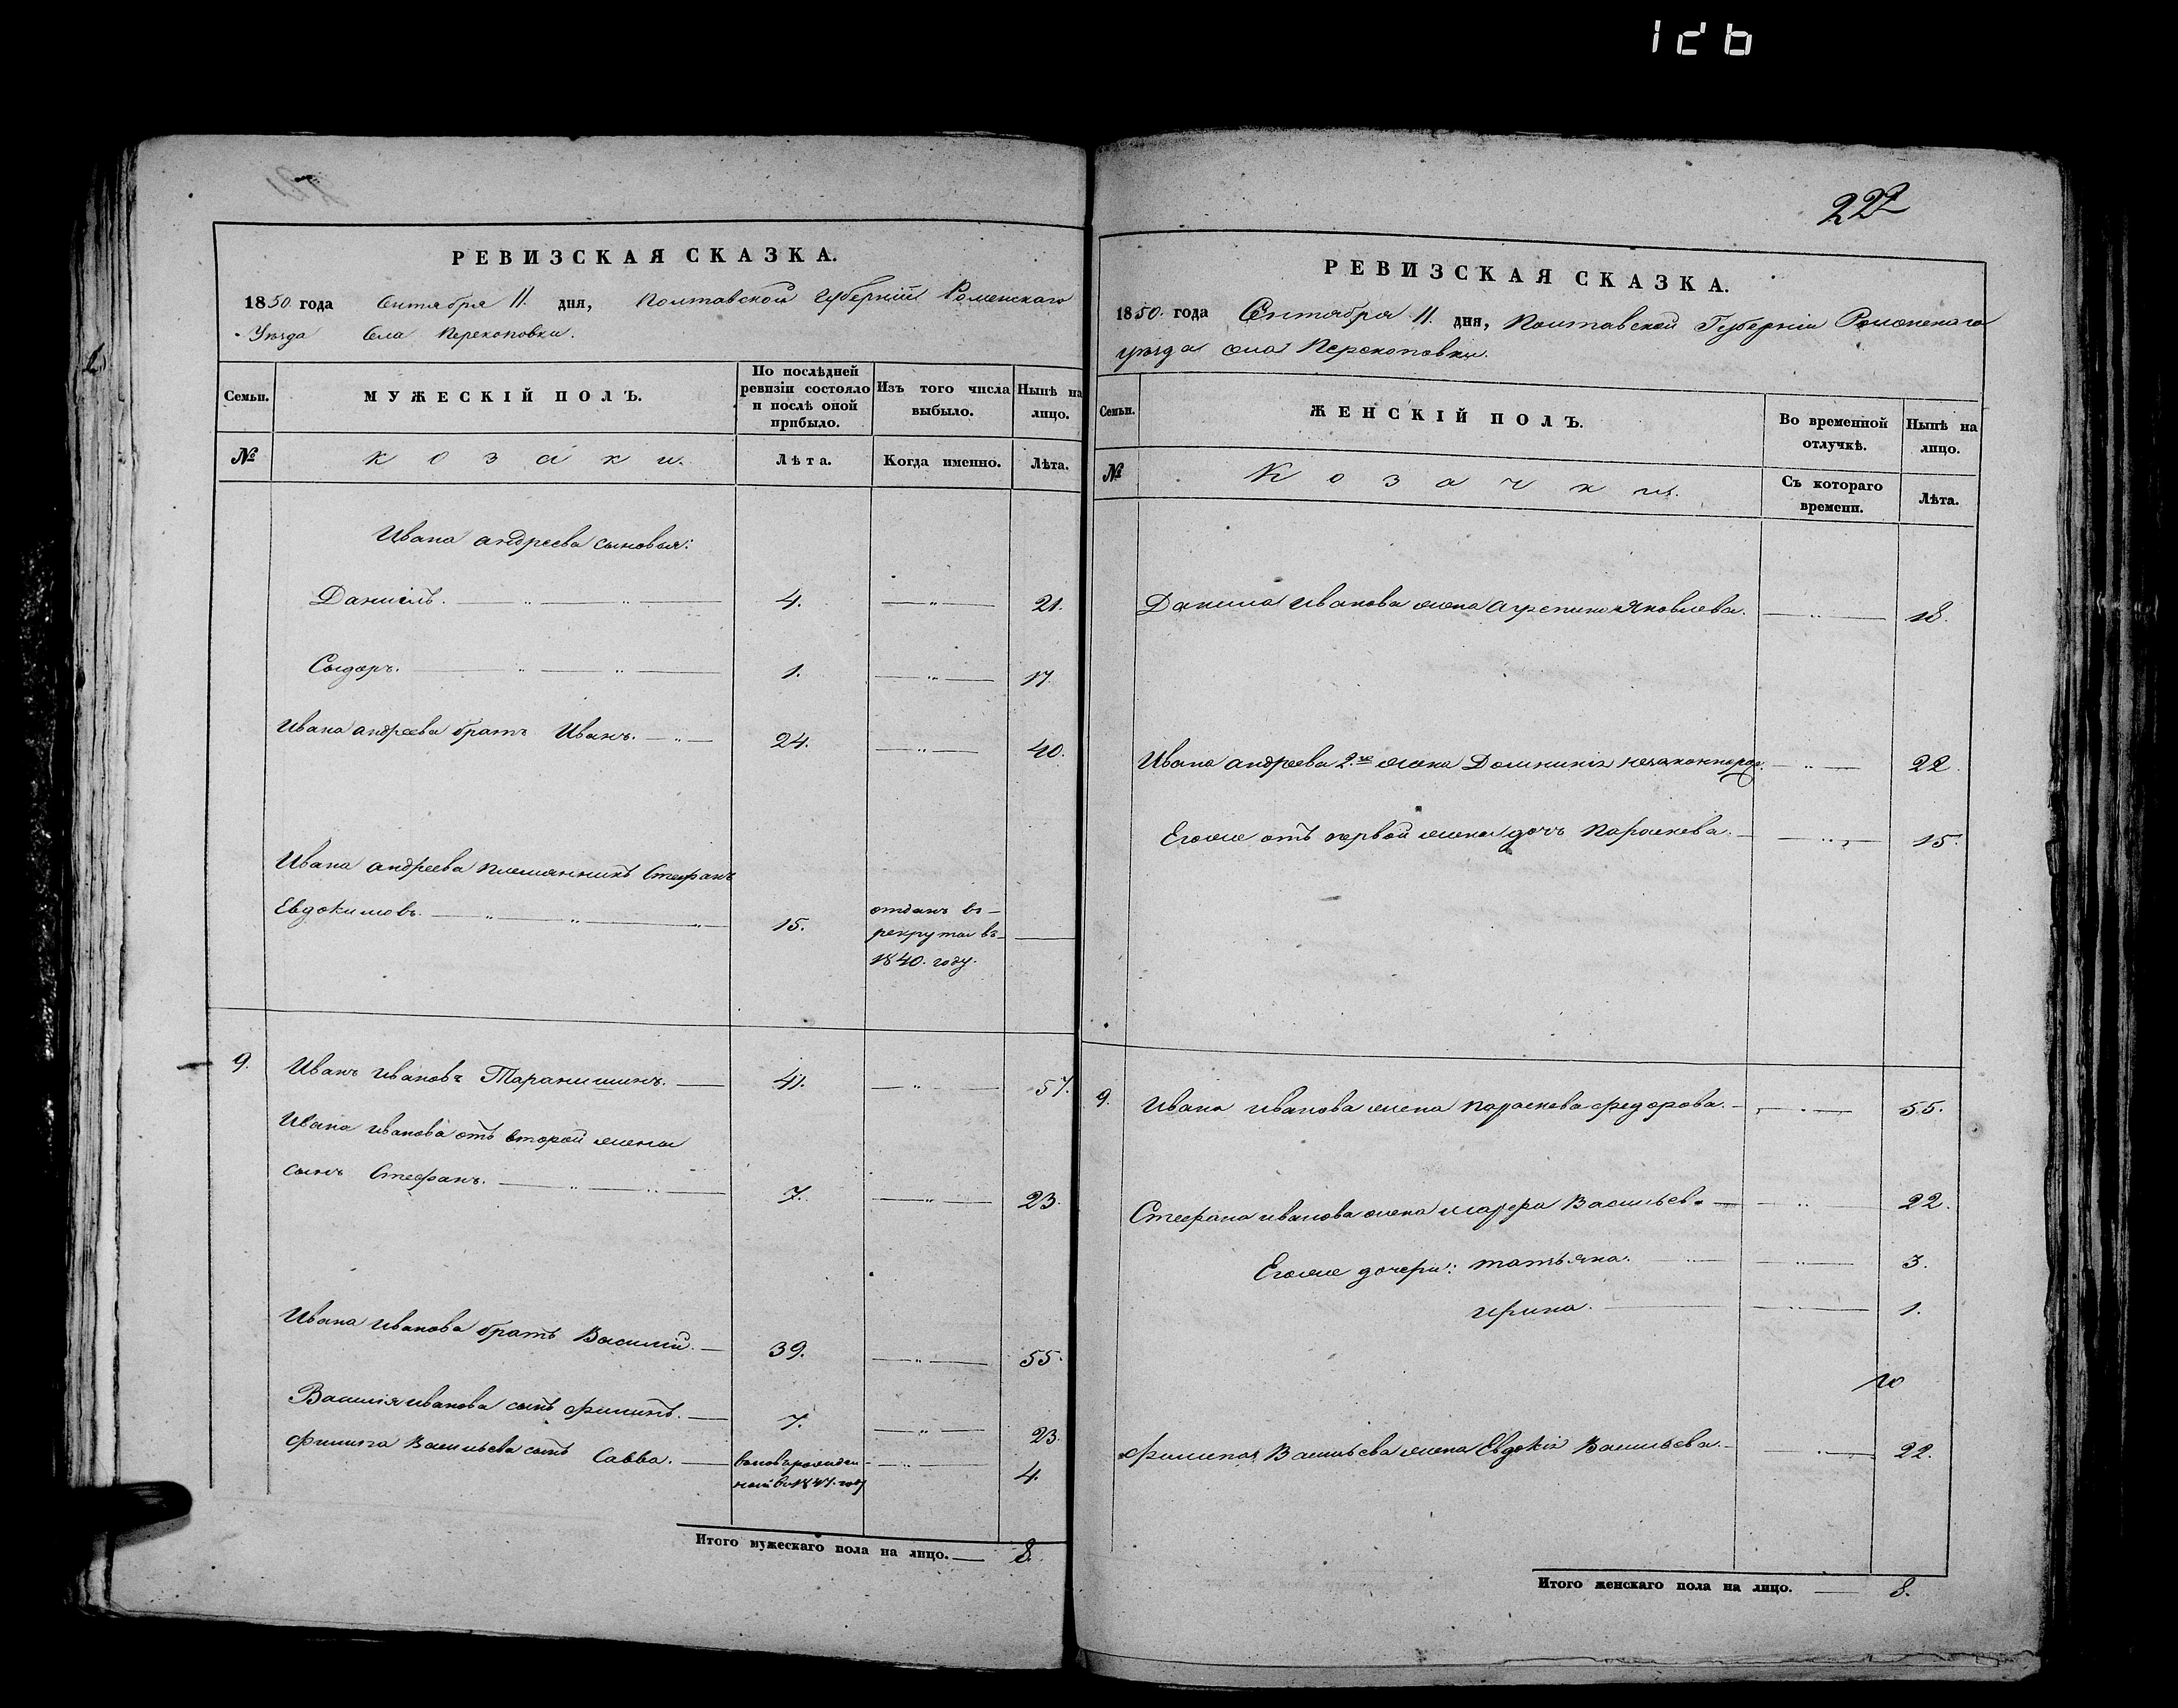 1db
РЕВИЗСКАЯ СКАЗКА.
1850. года Сентября 11. дня, Полтавской Губерніи Роменскаго
Уѣзда Села Перекоповки.
Семьи. МУЖЕСКІЙ ПОЛЪ. По послѣдней ревизіи состояло и послѣ оной прибыло. Изъ того числа выбыло. Нынѣ на лицо.
№ Козаки. Лѣта. Когда именно. Лѣта.
Ивана Андреева сыновья:
Даніилъ. 4. 21.
Сыдоръ. 1. 17.
Ивана Андреева братъ Иванъ. 24. 40.
Ивана Андреева племянникъ Стефанъ
Евдокимовъ. 15. отданъ въ
рекруты въ
1840. году.
9. Иванъ Ивановъ 41. 57.
Ивана Иванова отъ второй жены
сынъ Стефанъ. 7. 23.
Ивана Иванова братъ Василій. 39. 55.
Василія Иванова сынъ Филипъ. 7. 23.
Филипа Васильева сынъ Савва. 4.
Итого мужескаго пола на лицо. 8.
227
РЕВИЗСКАЯ СКАЗКА.
1850. года Сентября 11. дня, Полтавской Губерніи Роменскаго
уѣзда села Перекоповки.
Семьи. ЖЕНСКІЙ ПОЛЪ. Во временной отлучкѣ. Нынѣ на лицо.
№ Козачки. Съ котораго времени. Лѣта.
Данила Иванова жена Агрепина Яковлева. 18.
Ивана Андреева 2.я жена Домникія незаконнорож. 22.
Егоже отъ первой жены дочь Параскева. 15.
9. Ивана Иванова жена Параскева Федорова. 55.
Стефана Иванова жена Васильева 22.
Егоже дочери: Татьяна. 3.
Ирина. 1.
Филипа Васильева жена Евдокія Васильева. 22.
Итого женскаго пола на лицо. 8.